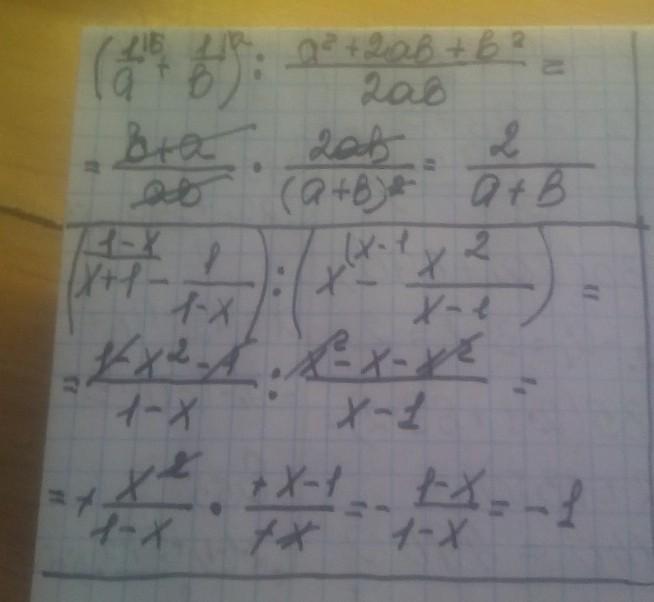 (1|b/a + 1|a/b) : (a² + 2ab + b²)/(2ab) =
= (b+a)/(ab) · (2ab)/((a+b)²) = 2/(a+b)
((1-x|x+1) - 1/(1-x)) : ((x-1|x) - x²/(x-1)) =
= (1-x²-1)/(1-x) : (x²-x-x²)/(x-1) =
= + x²/(1-x) · (+x-1)/(+x) = - (1-x)/(1-x) = -1